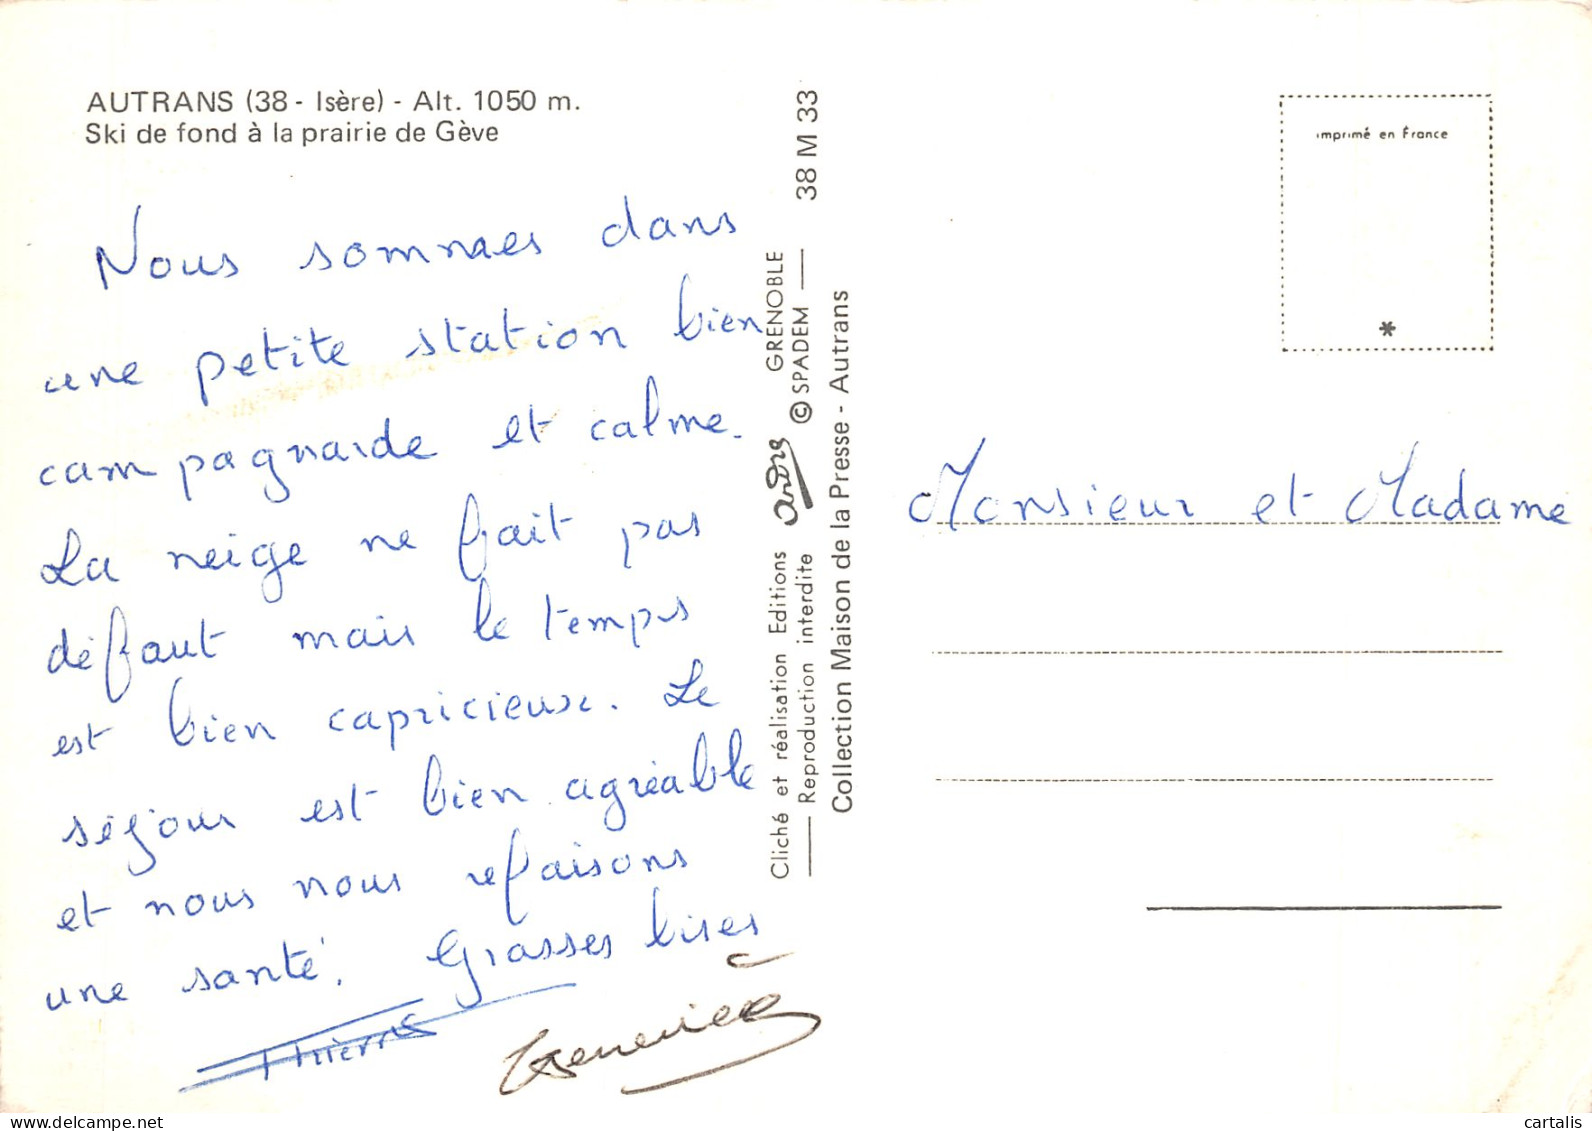 AUTRANS (38 - Isère) - Alt. 1050 m.
Ski de fond à la prairie de Gève
Nous sommes dans
une petite station bien
campagnarde et calme.
La neige ne fait pas
défaut mais le temps
est bien capricieux. Le
séjour est bien agréable
et nous nous refaisons
une santé. Grosses bises
Thierry
Geneviève
Cliché et réalisation Editions André GRENOBLE
Reproduction interdite © SPADEM
38 M 33
Collection Maison de la Presse - Autrans
imprimé en France
*
Monsieur et Madame
cartalis
delcampe.net